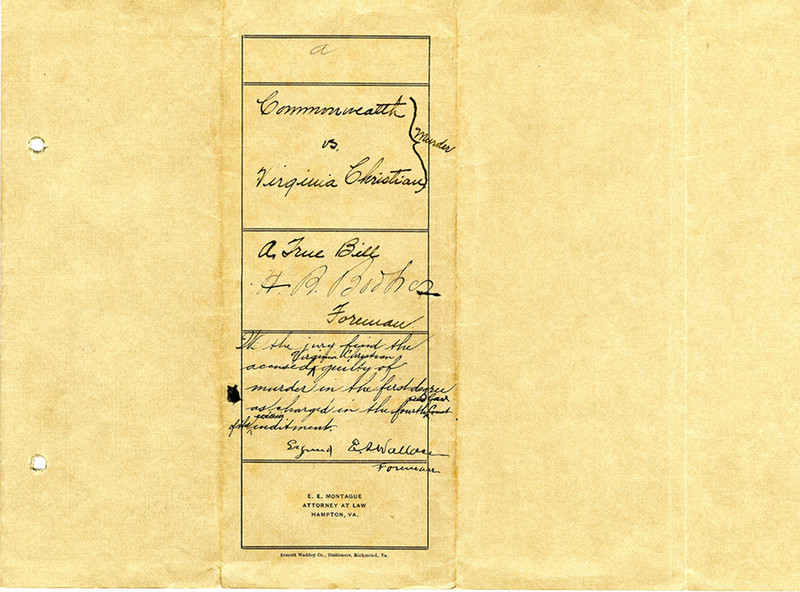 a
Commonwealth
vs.
Murder
Virginia Christian
A True Bill
H. R.
Foreman
We the jury find the
Virginia Christian
accused guilty of
murder in the first degree
as charged in the fourth Count
of the within inditment.
Signed E. A. Wallace
Foreman
E. E. MONTAGUE
ATTORNEY AT LAW
HAMPTON, VA.
Everett Waddey Co., Stationers, Richmond, Va.